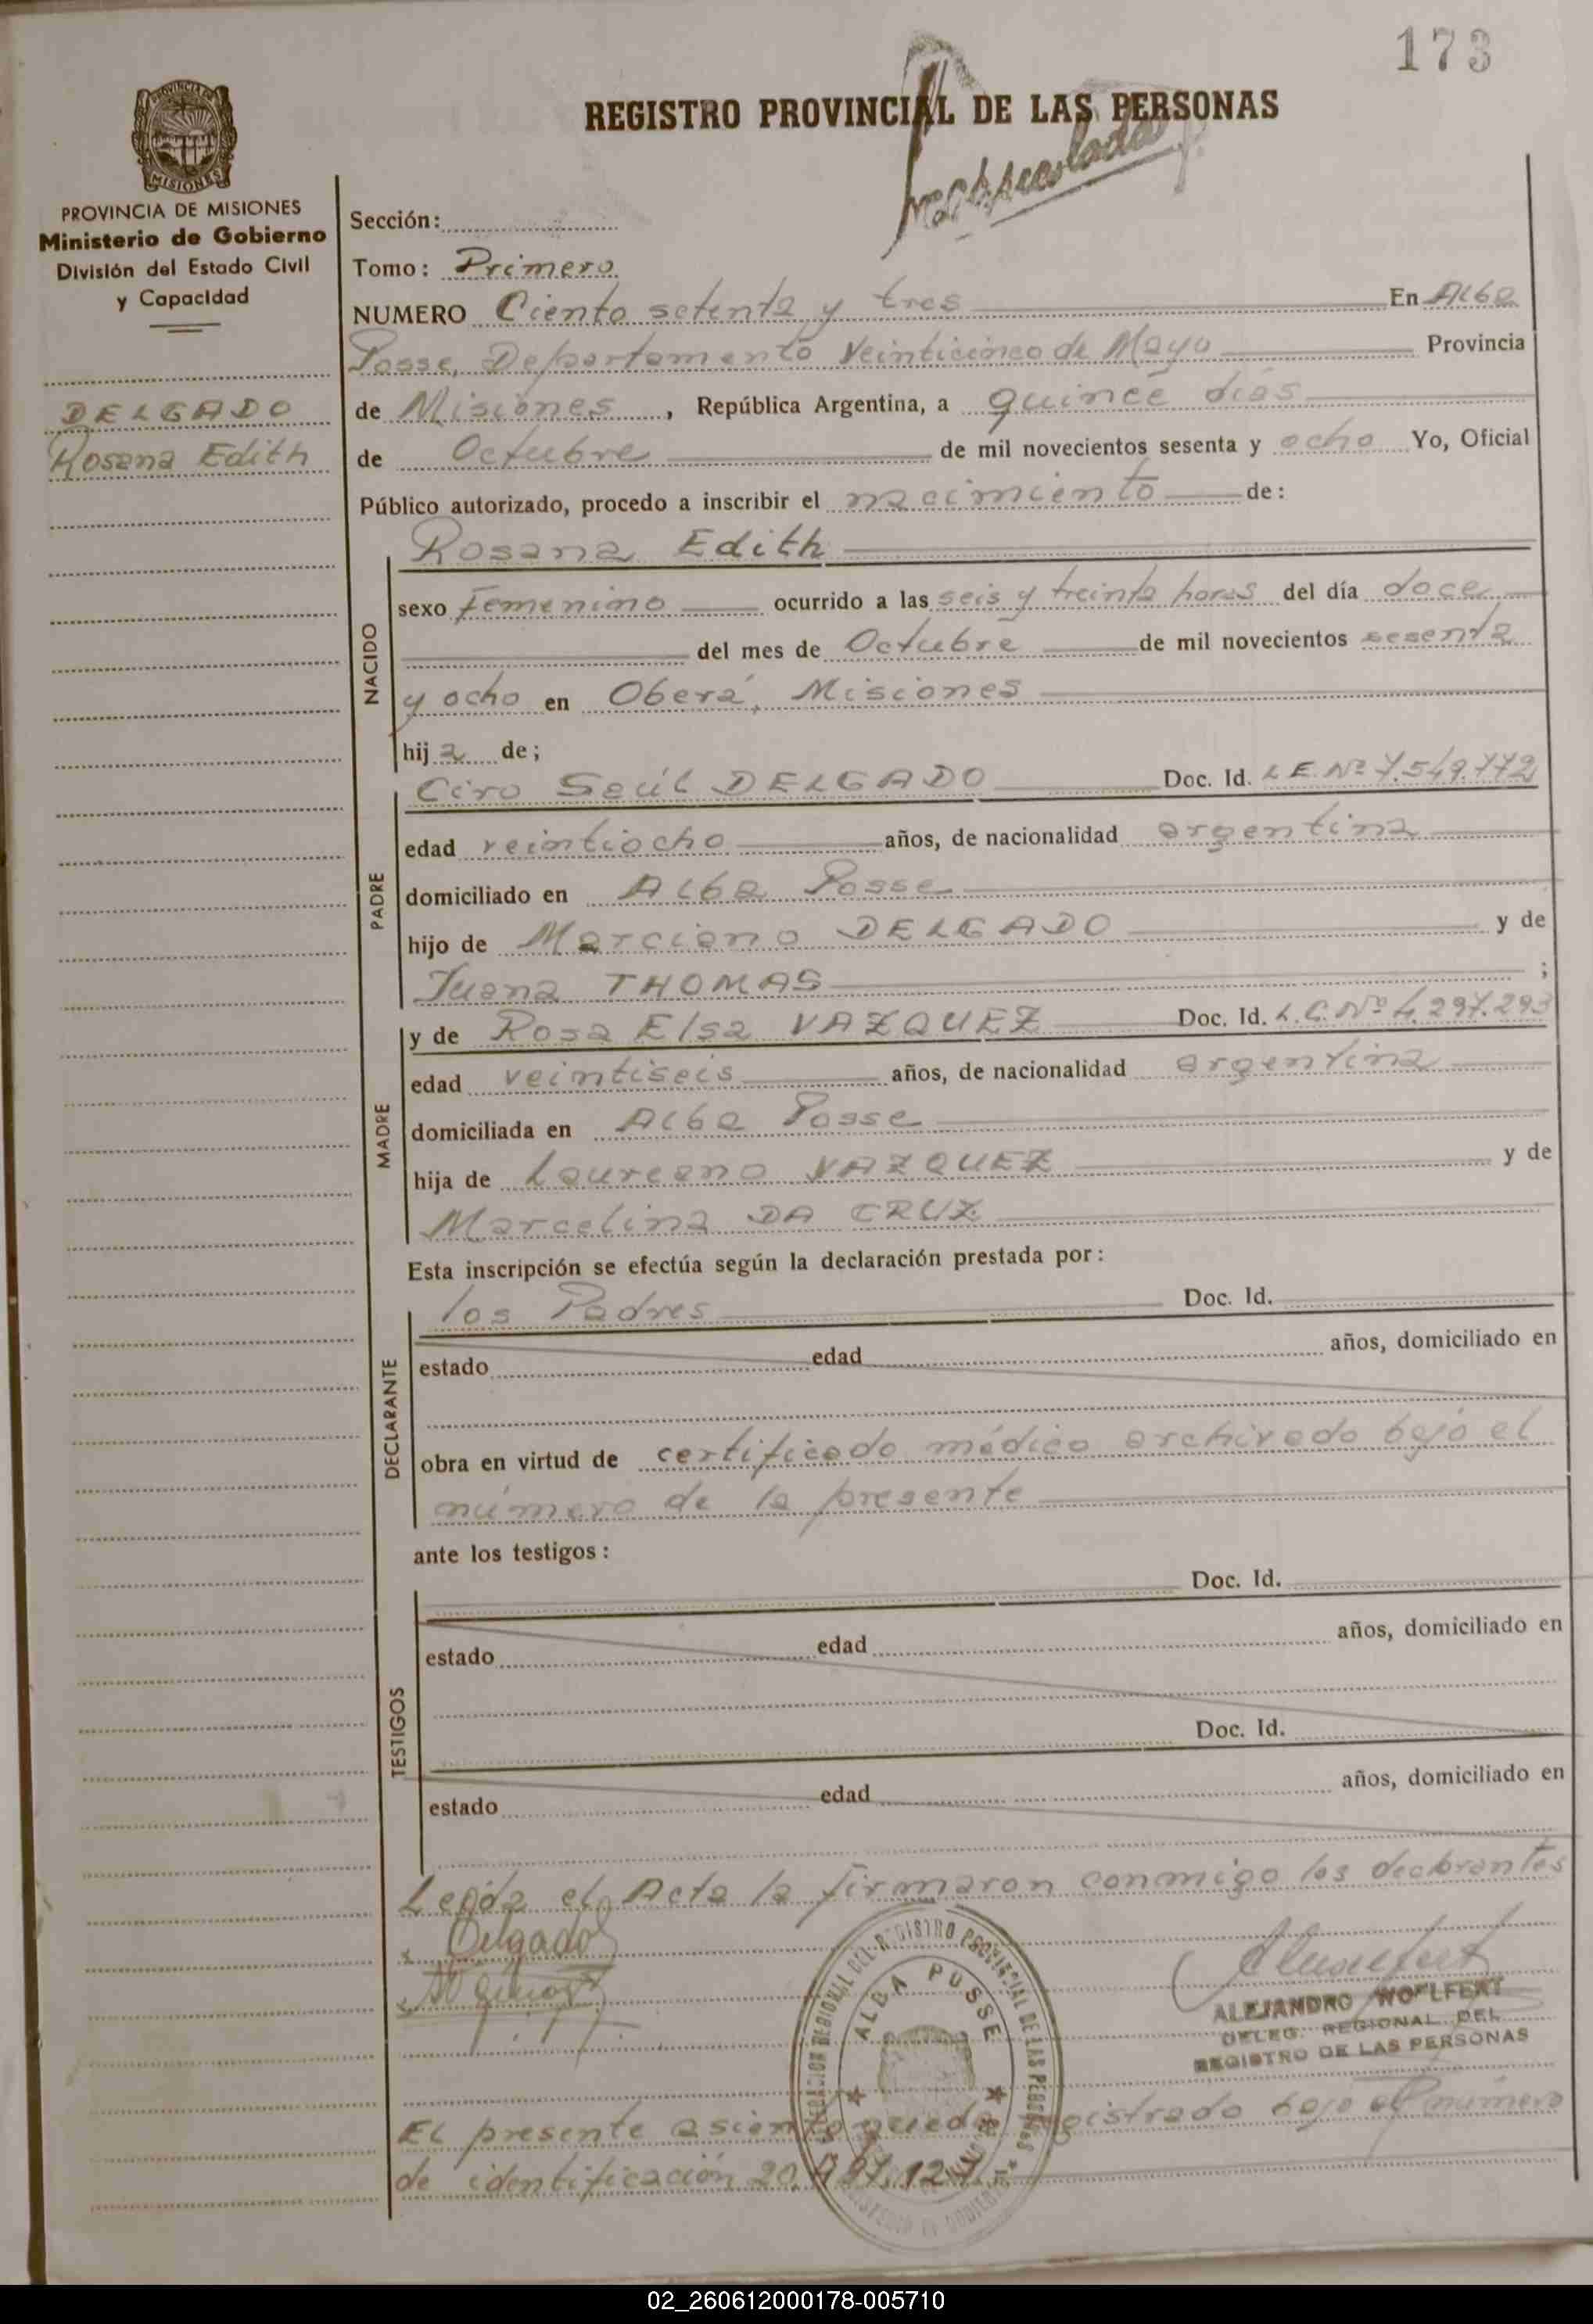 173
REGISTRO PROVINCIAL DE LAS PERSONAS
PROVINCIA DE MISIONES
MISIONES
PROVINCIA DE MISIONES
Ministerio de Gobierno
División del Estado Civil
y Capacidad
DELGADO
Rosana Edith
Sección:
Tomo: Primero
NUMERO Ciento setenta y tres En Alba
Posse, Departamento Veinticinco de Mayo Provincia
de Misiones, República Argentina, a quince días
de Octubre de mil novecientos sesenta y ocho Yo, Oficial
Público autorizado, procedo a inscribir el nacimiento de:
NACIDO
Rosana Edith
sexo femenino ocurrido a las seis y treinta horas del día doce
del mes de Octubre de mil novecientos sesenta
y ocho en Oberá, Misiones
hija de;
PADRE
Ciro Saúl DELGADO Doc. Id. L.E. Nº 7.549.772
edad veintiocho años, de nacionalidad argentina
domiciliado en Alba Posse
hijo de Marciano DELGADO y de
Juana THOMAS ;
MADRE
y de Rosa Elsa VAZQUEZ Doc. Id. L.C. Nº 4.297.293
edad veintiseis años, de nacionalidad argentina
domiciliada en Alba Posse
hija de Laureano VAZQUEZ y de
Marcelina DA CRUZ
Esta inscripción se efectúa según la declaración prestada por:
DECLARANTE
los Padres Doc. Id.
estado edad años, domiciliado en
obra en virtud de certificado médico archivado bajo el
número de la presente
ante los testigos:
TESTIGOS
Doc. Id.
estado edad años, domiciliado en
Doc. Id.
estado edad años, domiciliado en
Leída el Acta la firmaron conmigo los declarantes
Delgado
ALEJANDRO WOLFERT
DELEG. REGIONAL DEL
REGISTRO DE LAS PERSONAS
DELEGACION REGIONAL DEL REGISTRO PROVINCIAL DE LAS PERSONAS
ALBA POSSE
El presente asiento queda registrado bajo el número
de identificación 20.
02_260612000178-005710